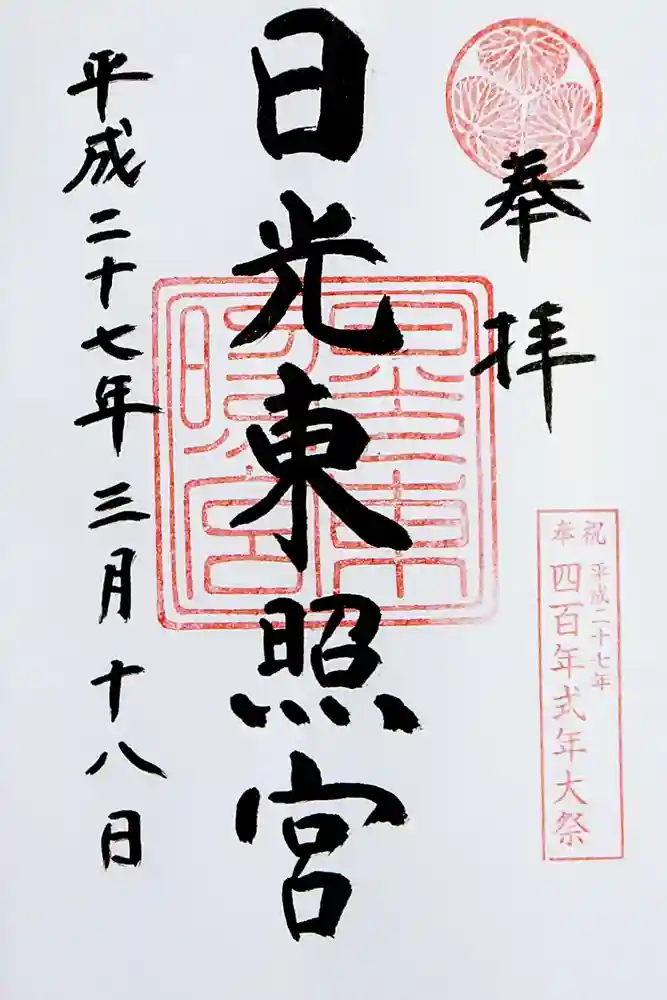 奉拝
奉祝
平成二十七年
四百年式年大祭
日光東照宮
平成二十七年三月十八日